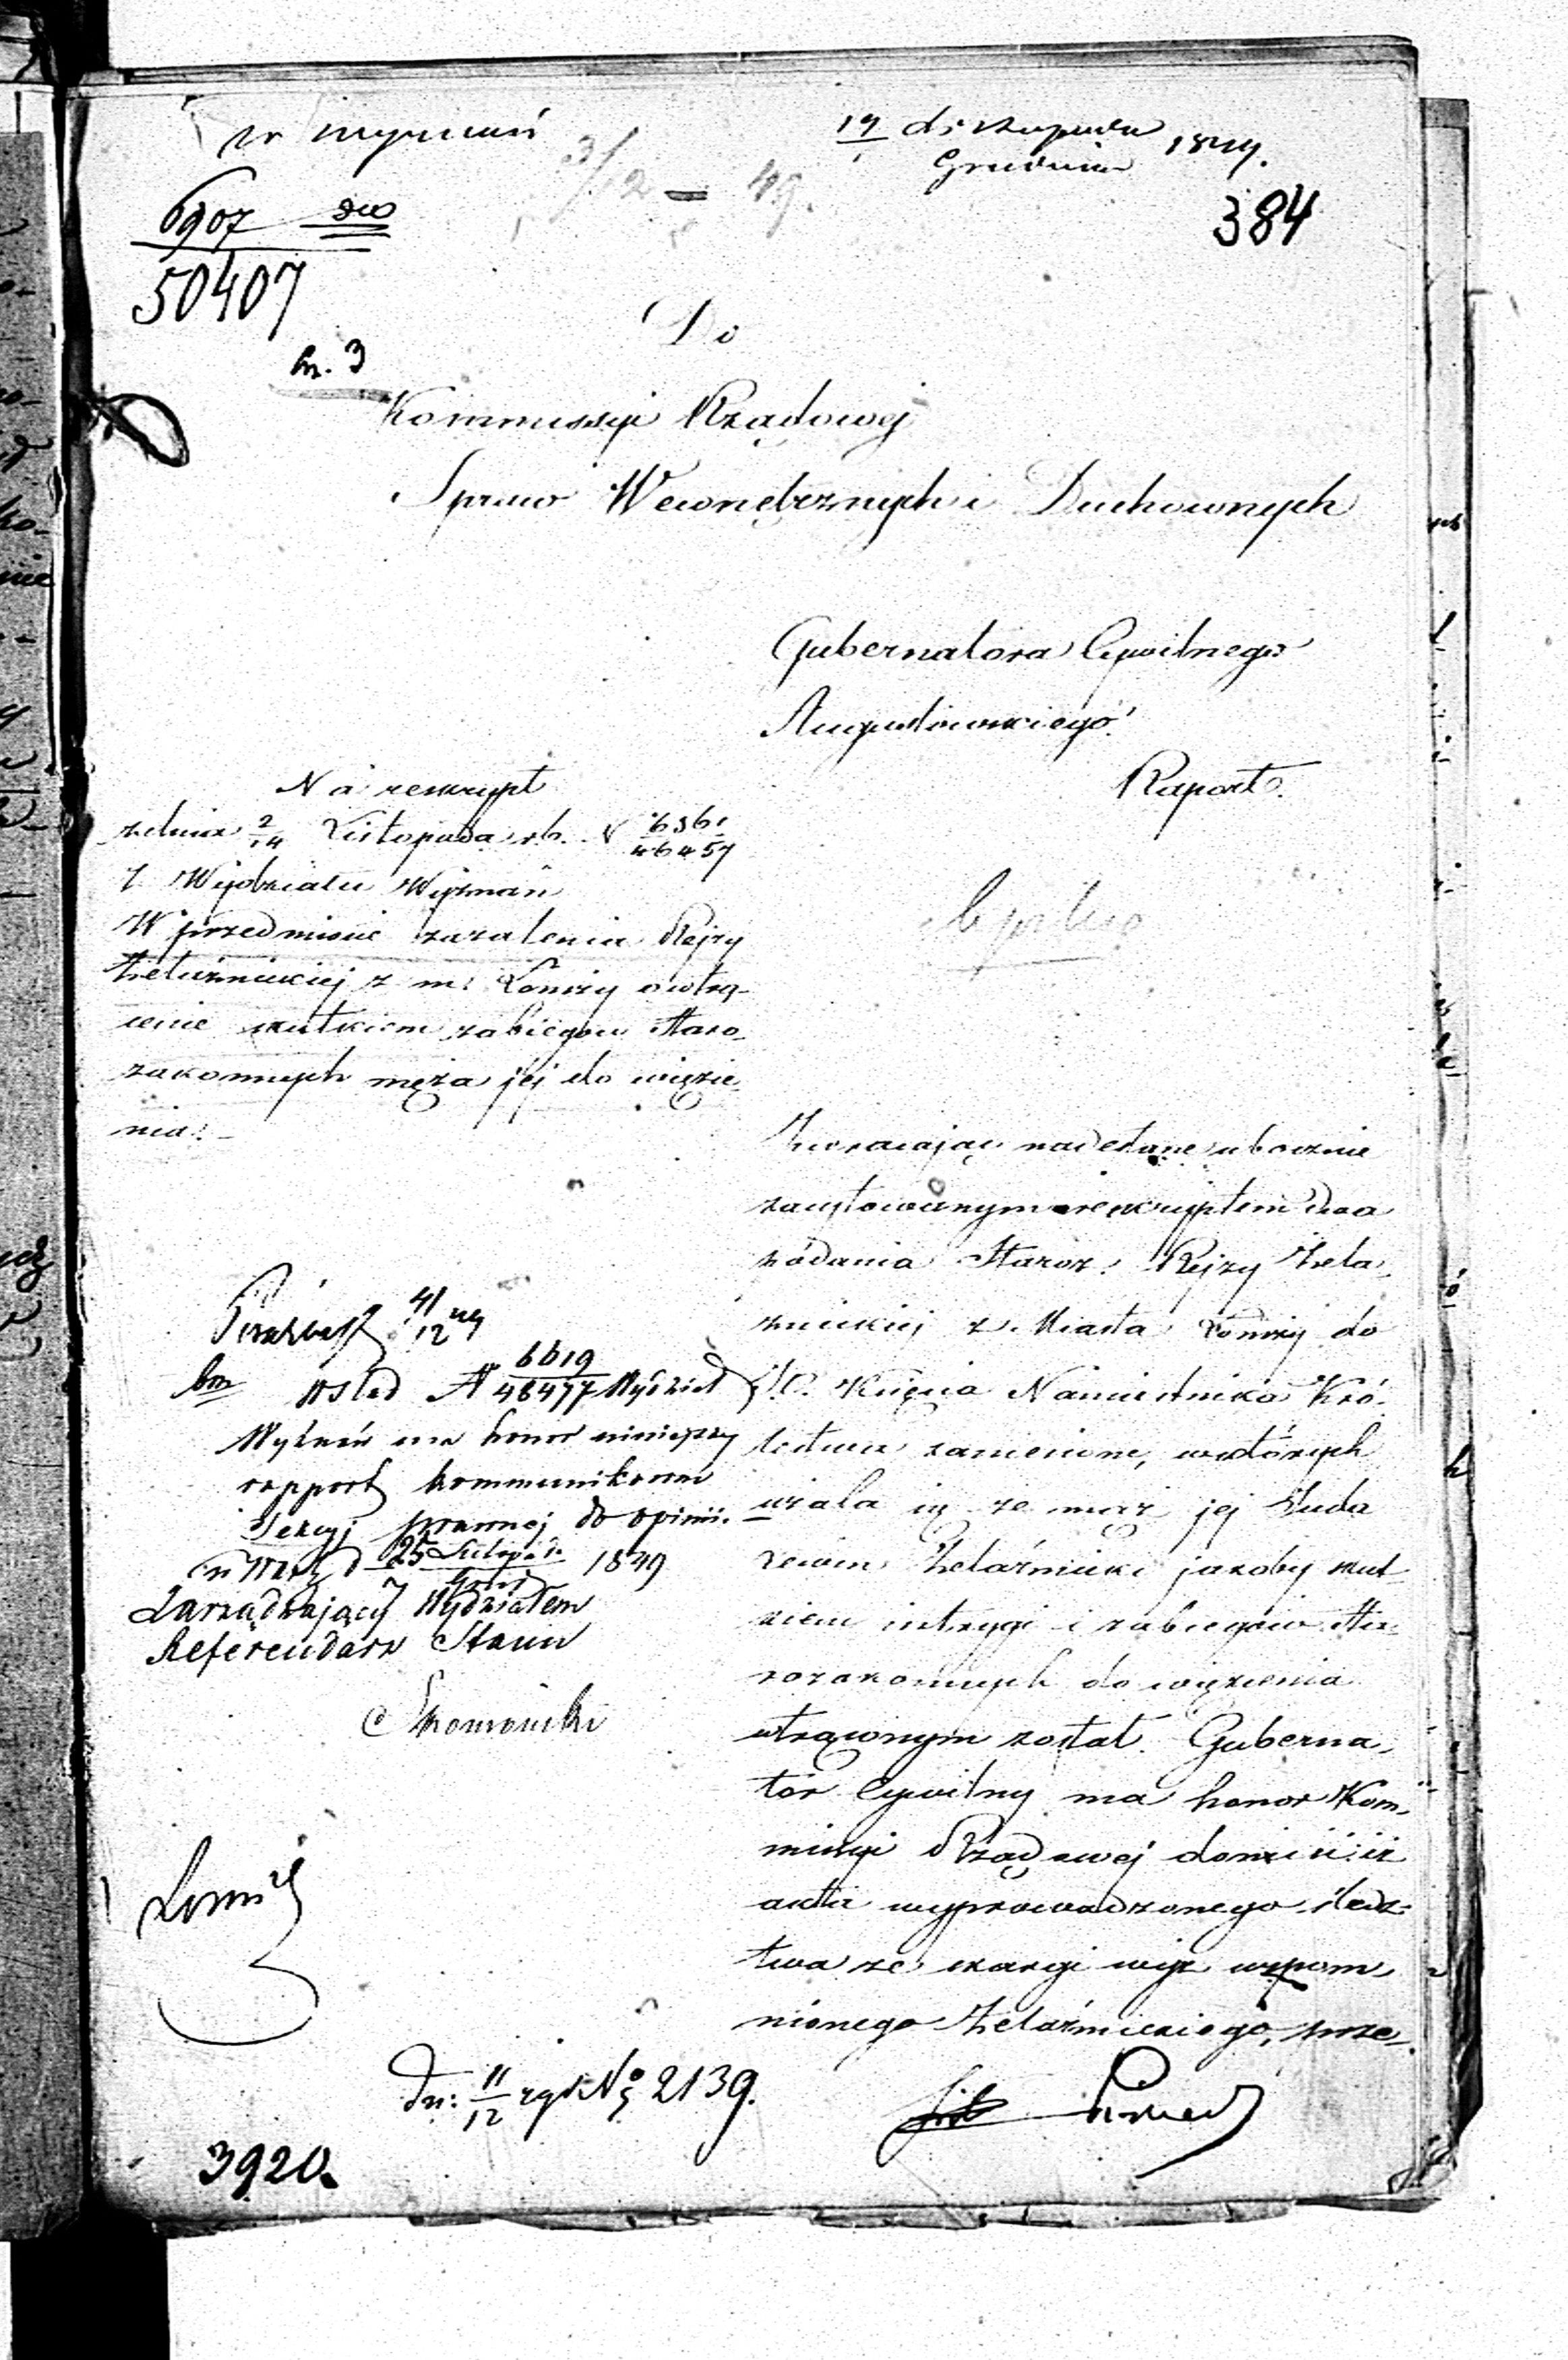 19 Listopada 1849.
Grudnia
6907
50407
384
Do
Kommissyi Rządowej
Spraw Wewnętrznych i Duchownych
Gubernatora Cywilnego
Augustowskiego
Raport.
Na reskrypt
z dnia 2/14 Listopada r.b. N 6361/46457
z Wydziału Wyznań
W przedmiocie zażalenia Rejzy
Żelaźnickiej z m: Łomży o wtrą-
cenie skutkiem zabiegów Staro-
zakonnych męża jej do więzie-
nia.
Zwracając nadesłane ubocznie
zacytowanym reskryptem dwa
podania Staroz. Rejzy Żela-
źnickiej z Miasta Łomży do
J.O. Księcia Namiestnika Kró-
lestwa zaniesione, w których
użala się że mąż jej Juda
Żelaźnicki jakoby skut-
kiem intrygi i zabiegów Sta-
rozakonnych do więzienia
wtrąconym został. Guberna-
tor Cywilny ma honor Kom-
missyi Rządowej donieść iż
akta wyprowadzonego śledz-
twa ze skargi wyż wspom-
nionego Żelaźnickiego, prze-
41/12 49
W ślad N 6619/48477 Wydział
Wyznań ma honor niniejszy
rapport kommunikować
Sekcyi prawnej do opinii.
w Warsz d 25 Listopada 1849
7 Grud
Zarządzający Wydziałem
Referendarz Stanu
Dn: 11/12 rgst No 2139.
3920.